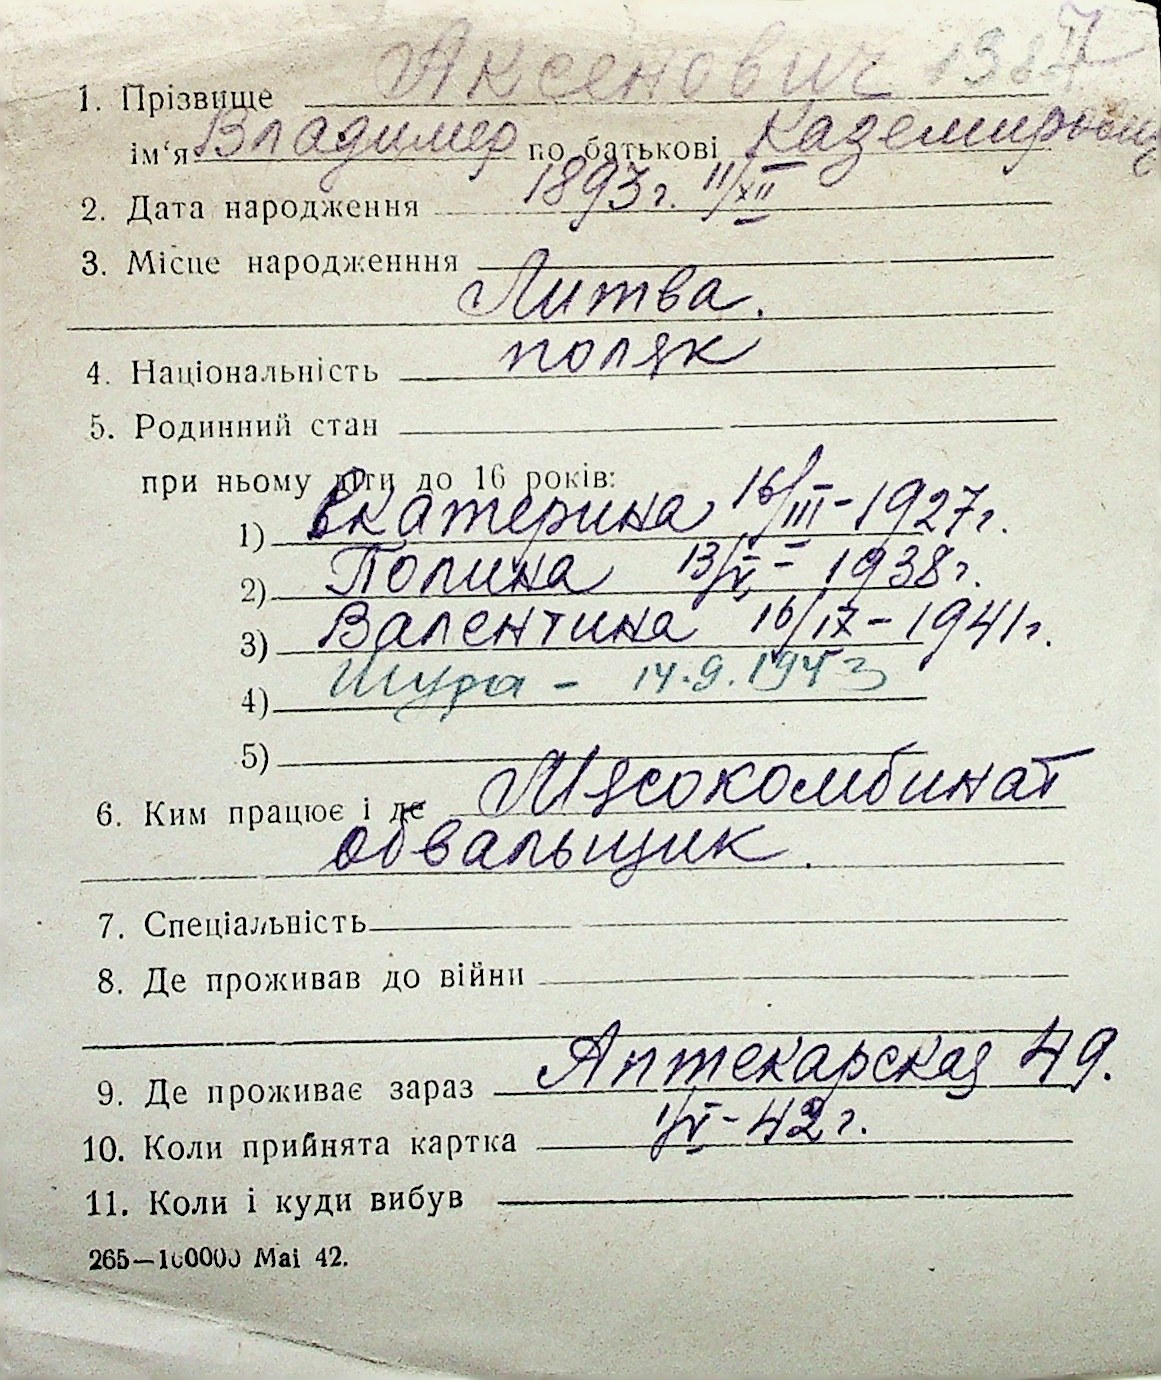 1. Прізвище Аксенович
ім‘я Владимер по батькові Каземирович
2. Дата народження 1893г. 11/XII
3. Місце народженння
Литва.
4. Національність поляк
5. Родинний стан
при ньому діти до 16 років:
1) Екатерина 16/III-1927г.
2) Полина 13/V-1938г.
3) Валентина 16/IX-1941г.
4) Шура - 14.9.1943
5)
6. Ким працює і де Мясокомбинат
обвальщик.
7. Спеціальність
8. Де проживав до війни
9. Де проживає зараз Аптекарская 49.
10. Коли прийнята картка 1/V-42г.
11. Коли і куди вибув
265—100000 Mai 42.